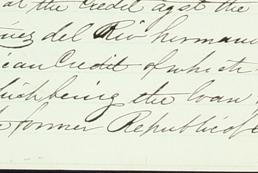 at the credit agst the
uez del Rio hermano
ican Credit of which
which being the loan
former Republic of